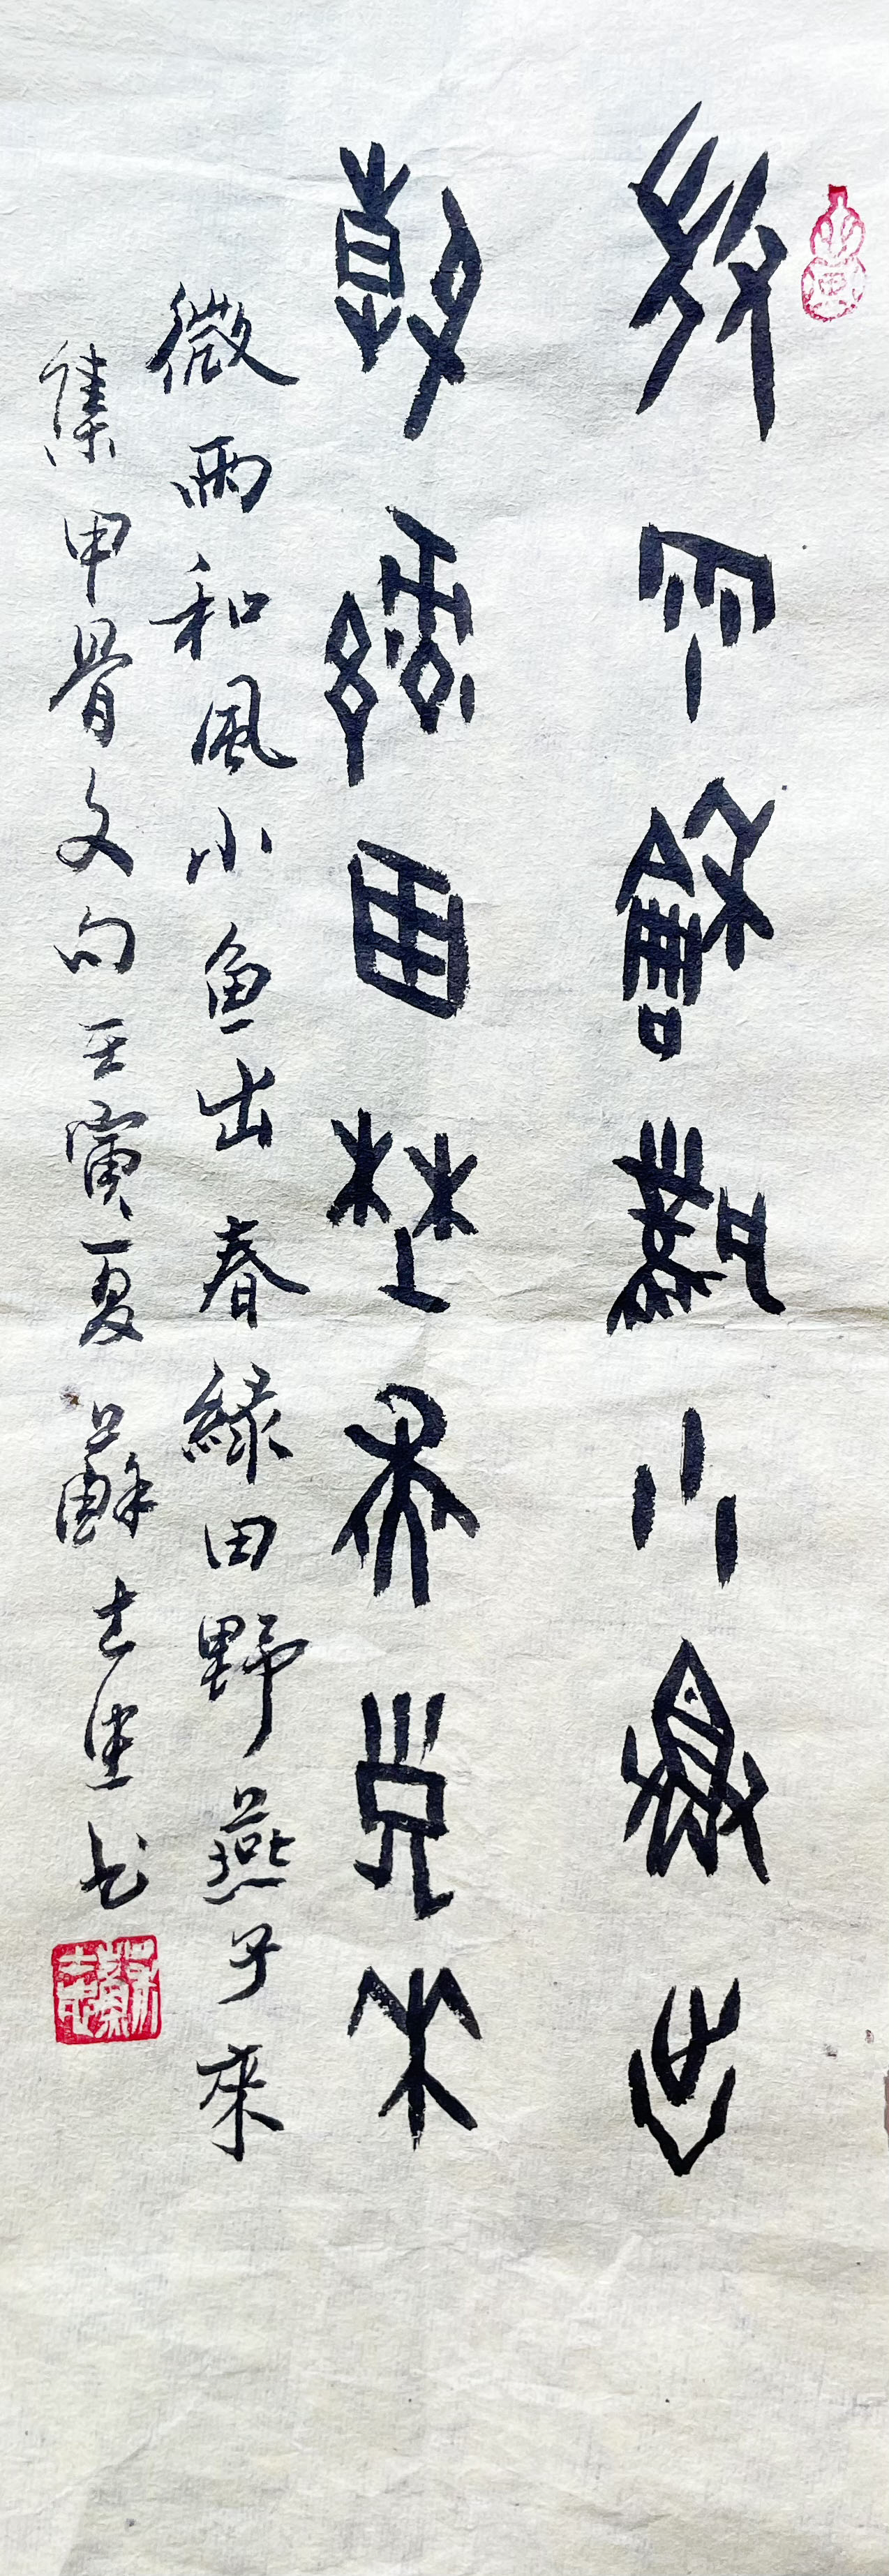 微雨和風小魚出
春綠田野燕子來
微雨和風小魚出春綠田野燕子來
集甲骨文句壬寅夏蘇士書